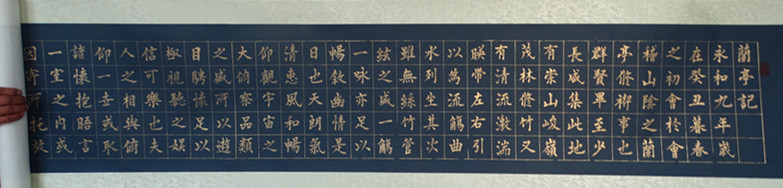 蘭亭記
永和九年歲
在癸丑暮春
之初會於會
稽山陰之蘭
亭脩禊事也
群賢畢至少
長咸集此地
有崇山峻嶺
茂林脩竹又
有清流激湍
暎帶左右引
以為流觴曲
水列坐其次
雖無絲竹管
絃之盛一觴
一詠亦足以
暢敘幽情是
日也天朗氣
清惠風和暢
仰觀宇宙之
大俯察品類
之盛所以遊
目騁懷足以
極視聽之娛
信可樂也夫
人之相與俯
仰一世或取
諸懷抱晤言
一室之內或
因寄所託放